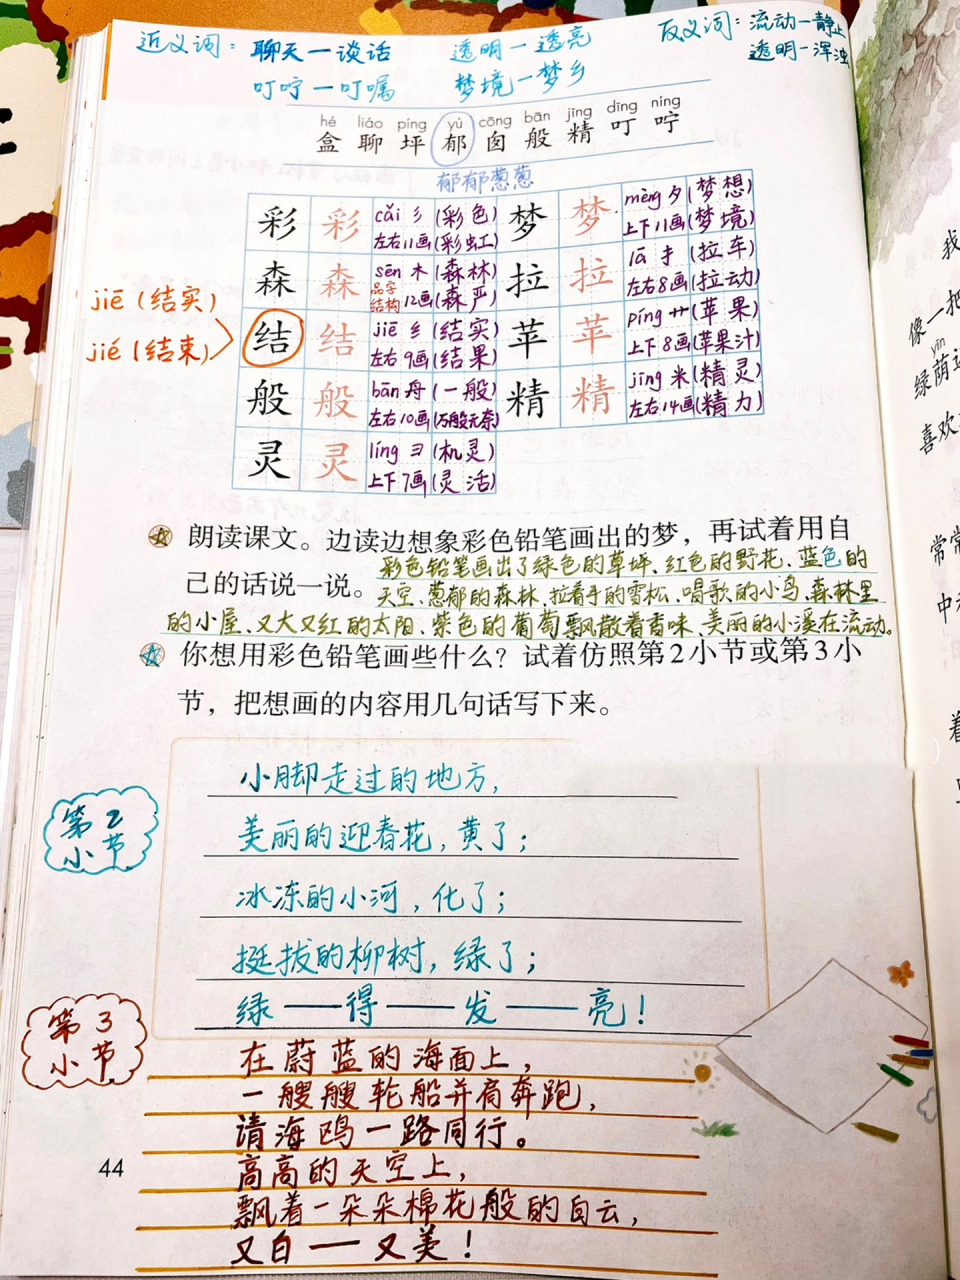 近义词：聊天—谈话 透明—透亮
叮咛—叮嘱 梦境—梦乡
反义词：流动—静止
透明—浑浊
hé liáo píng yù cōng bān jīng dīng níng
盒 聊 坪 郁 囱 般 精 叮 咛
郁郁葱葱
彩 彩 cǎi 彡 (彩色) 梦 梦 mèng 夕 (梦想)
左右 11画 (彩虹) 上下 11画 (梦境)
森 森 sēn 木 (森林) 拉 拉 lā 扌 (拉车)
品字结构 12画 (森严) 左右 8画 (拉动)
jiē (结实)
jié (结束)
结 结 jiē 纟 (结实) 苹 苹 píng 艹 (苹果)
左右 9画 (结果) 上下 8画 (苹果汁)
般 般 bān 舟 (一般) 精 精 jīng 米 (精灵)
左右 10画 (万般无奈) 左右 14画 (精力)
灵 灵 líng 彐 (机灵)
上下 7画 (灵活)
朗读课文。边读边想象彩色铅笔画出的梦，再试着用自
己的话说一说。
彩色铅笔画出了绿色的草坪、红色的野花、蓝色的
天空、葱郁的森林、拉着手的雪松、唱歌的小鸟、森林里
的小屋、又大又红的太阳、紫色的葡萄飘散着香味、美丽的小溪在流动。
你想用彩色铅笔画些什么？试着仿照第2小节或第3小
节，把想画的内容用几句话写下来。
第2
小节
小脚走过的地方，
美丽的迎春花，黄了；
冰冻的小河，化了；
挺拔的柳树，绿了；
绿——得——发——亮！
第3
小节
在蔚蓝的海面上，
一艘艘轮船并肩奔跑，
请海鸥一路同行。
高高的天空上，
飘着一朵朵棉花般的白云，
又白——又美！
44
我
像一把
yīn
绿荫
喜欢
常常
中
着